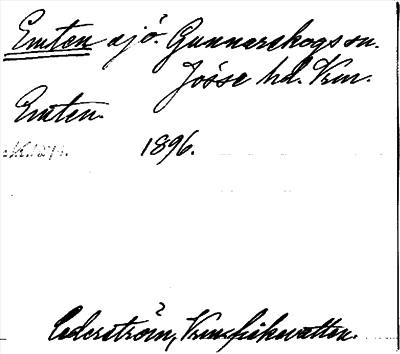 Emten sjö. Gunnarskogs sn.
Jösse hd. Vrm.
Emten.
1896.
Cederström, Vrm. fiskevatten.